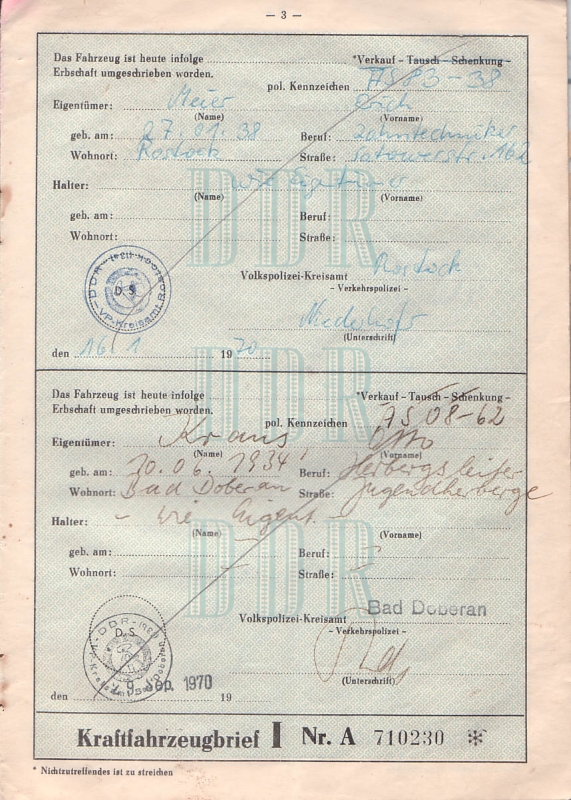 — 3 —
Das Fahrzeug ist heute infolge *Verkauf – Tausch – Schenkung –
Erbschaft umgeschrieben worden.
pol. Kennzeichen AS 83-38
Eigentümer: Meier Erich
(Name) (Vorname)
geb. am: 27.01.38 Beruf: Zahntechniker
Wohnort: Rostock Straße: Satowerstr. 162
Halter: wie Eigentümer
(Name) (Vorname)
geb. am: Beruf:
Wohnort: Straße:
DDR
Volkspolizei-Kreisamt Rostock
– Verkehrspolizei –
D. S.
VP-Kreisamt
Niederhöfer
(Unterschrift)
den 16/1 1970
DDR
Das Fahrzeug ist heute infolge *Verkauf – Tausch – Schenkung –
Erbschaft umgeschrieben worden.
pol. Kennzeichen AS 08-62
Eigentümer: Kraus Otto
(Name) (Vorname)
geb. am: 10.06.1934 Beruf: Herbergsleiter
Wohnort: Bad Doberan Straße: Jugendherberge
Halter: - wie Eigent. -
(Name) (Vorname)
geb. am: Beruf:
Wohnort: Straße:
DDR
Volkspolizei-Kreisamt Bad Doberan
– Verkehrspolizei –
DDR
D. S.
(Unterschrift)
den 9. Sep. 1970 19
Kraftfahrzeugbrief I Nr. A 710230 *
* Nichtzutreffendes ist zu streichen